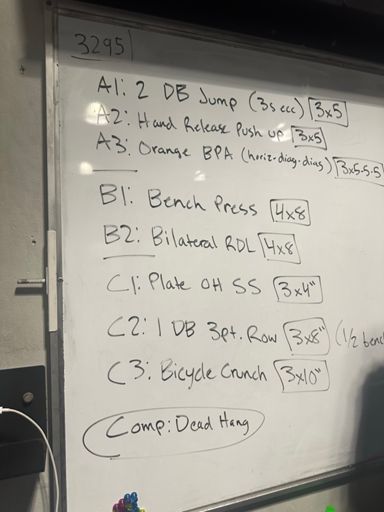 3295
A1: 2 DB Jump (3s ecc) 3x5
A2: Hand Release Push up 3x5
A3: Orange BPA (horiz-diag-diag) 3x5-5-5
B1: Bench Press 4x8
B2: Bilateral RDL 4x8
C1: Plate OH SS 3x4"
C2: 1 DB 3pt. Row 3x8" (1/2 benc
C3: Bicycle Crunch 3x10"
Comp: Dead Hang